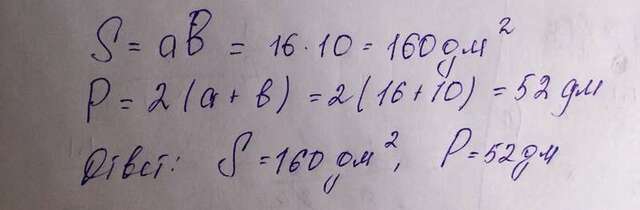 S = aв = 16 · 10 = 160 дм²
P = 2(a + в) = 2(16 + 10) = 52 дм
Ответ: S = 160 дм², P = 52 дм